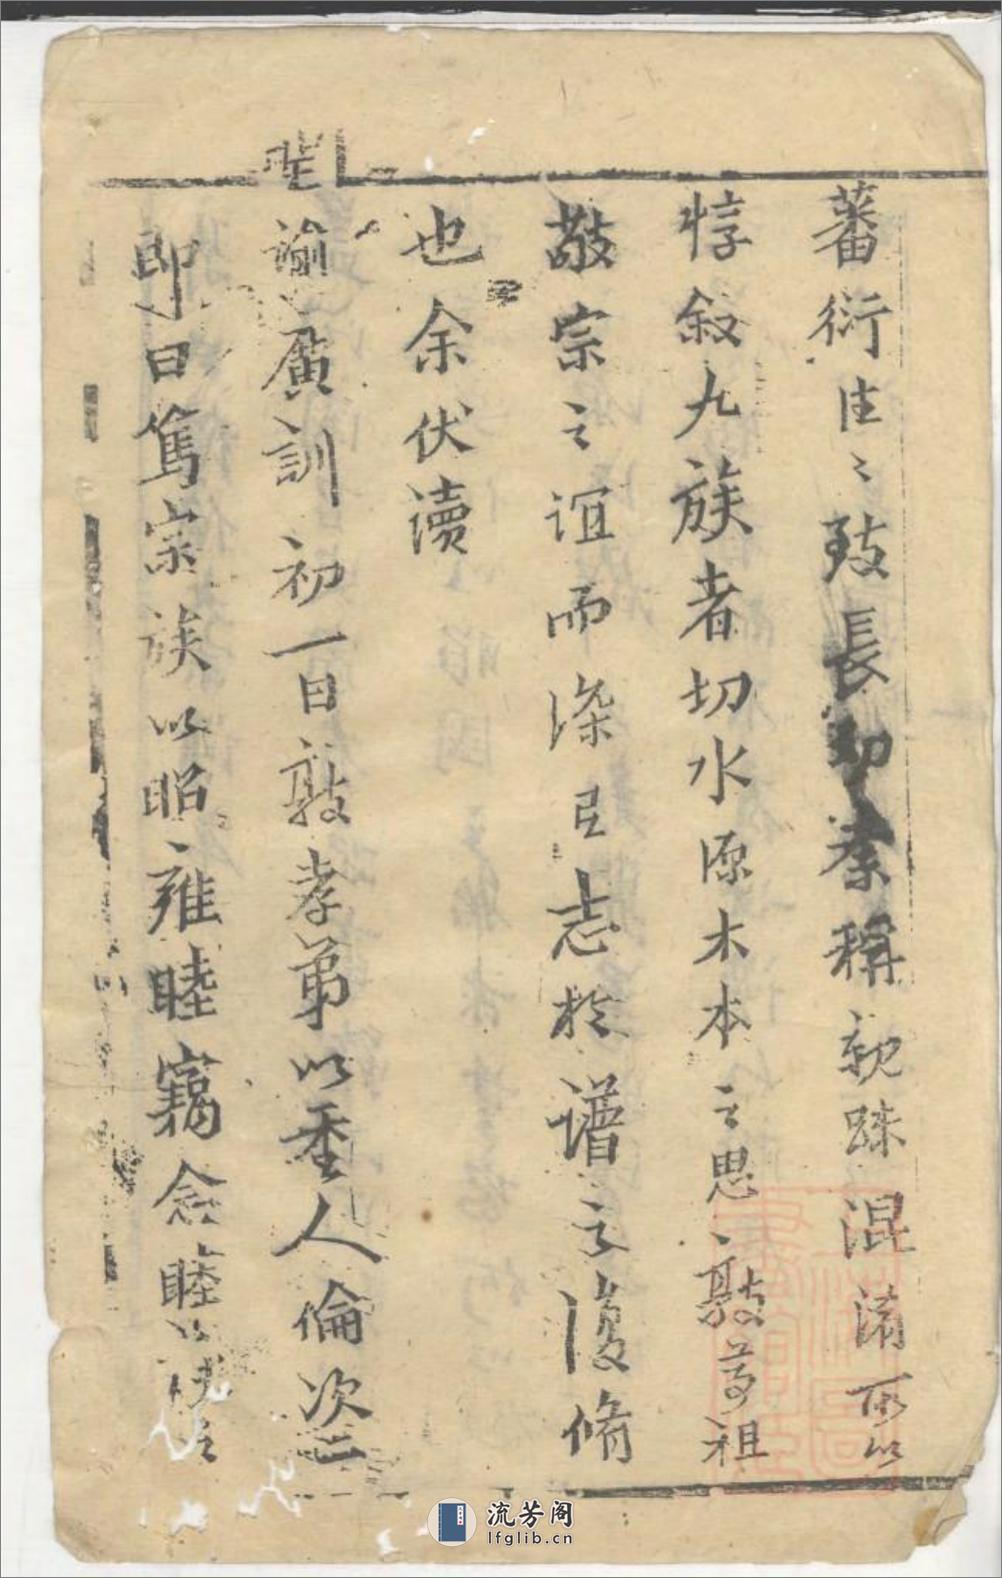 蕃衍生〻致長幼紊稱親疎混淆所以
惇敘九族者切水源木本之思敦尊祖
敬宗之誼而深已志於譜之復脩
也余伏讀
聖諭廣訓初一曰敦孝弟以重人倫次二
即曰篤宗族以昭雍睦竊念睦族之
流芳阁
lfglib.cn